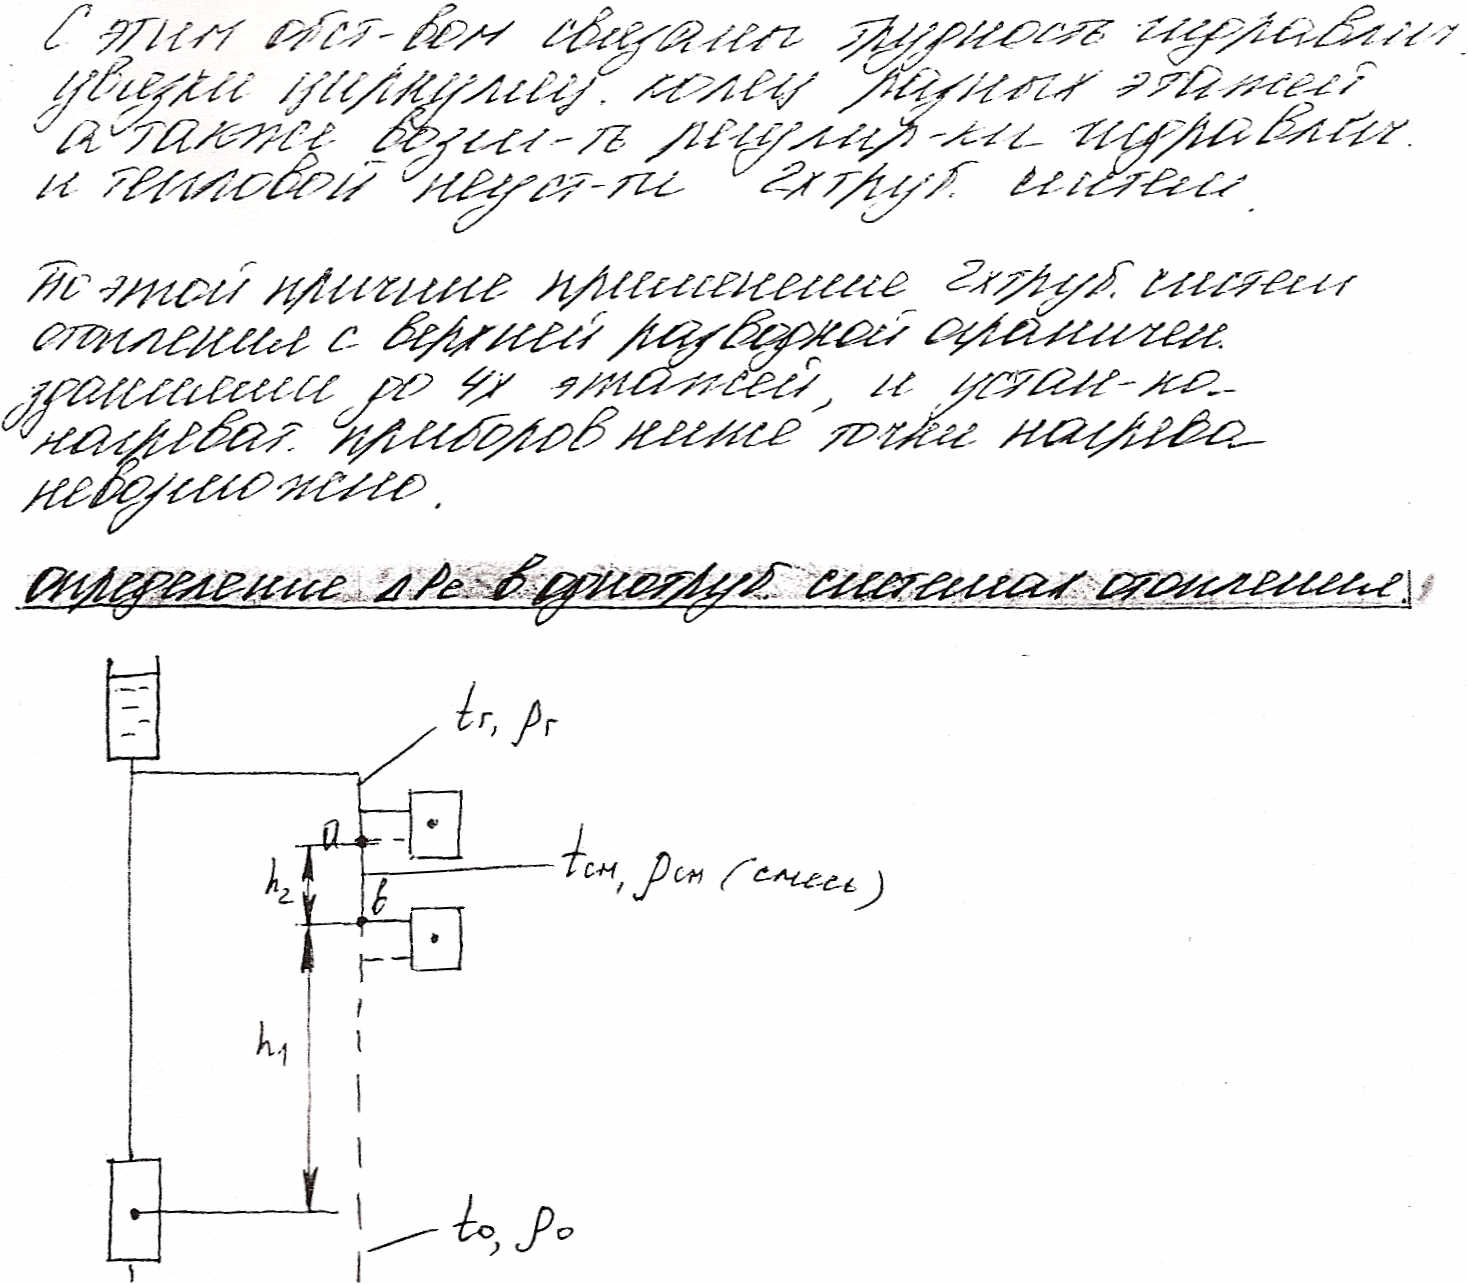 С этим обст-вом связаны трудность гидравлич.
увязки циркуляц. колец разных этажей
а также возм-ть регулир-ки гидравлич.
и тепловой неуст-ти 2хтруб. систем.
По этой причине применение 2хтруб. систем
отопления с верхней разводкой ограничен.
зданиями до 4х этажей, и устан-ка
нагреват. приборов ниже точки нагрева
невозможено.
определение ΔPe в однотруб. системах отопления.
tг, ρг
a
h2
tсм, ρсм (смесь)
в
h1
to, ρo